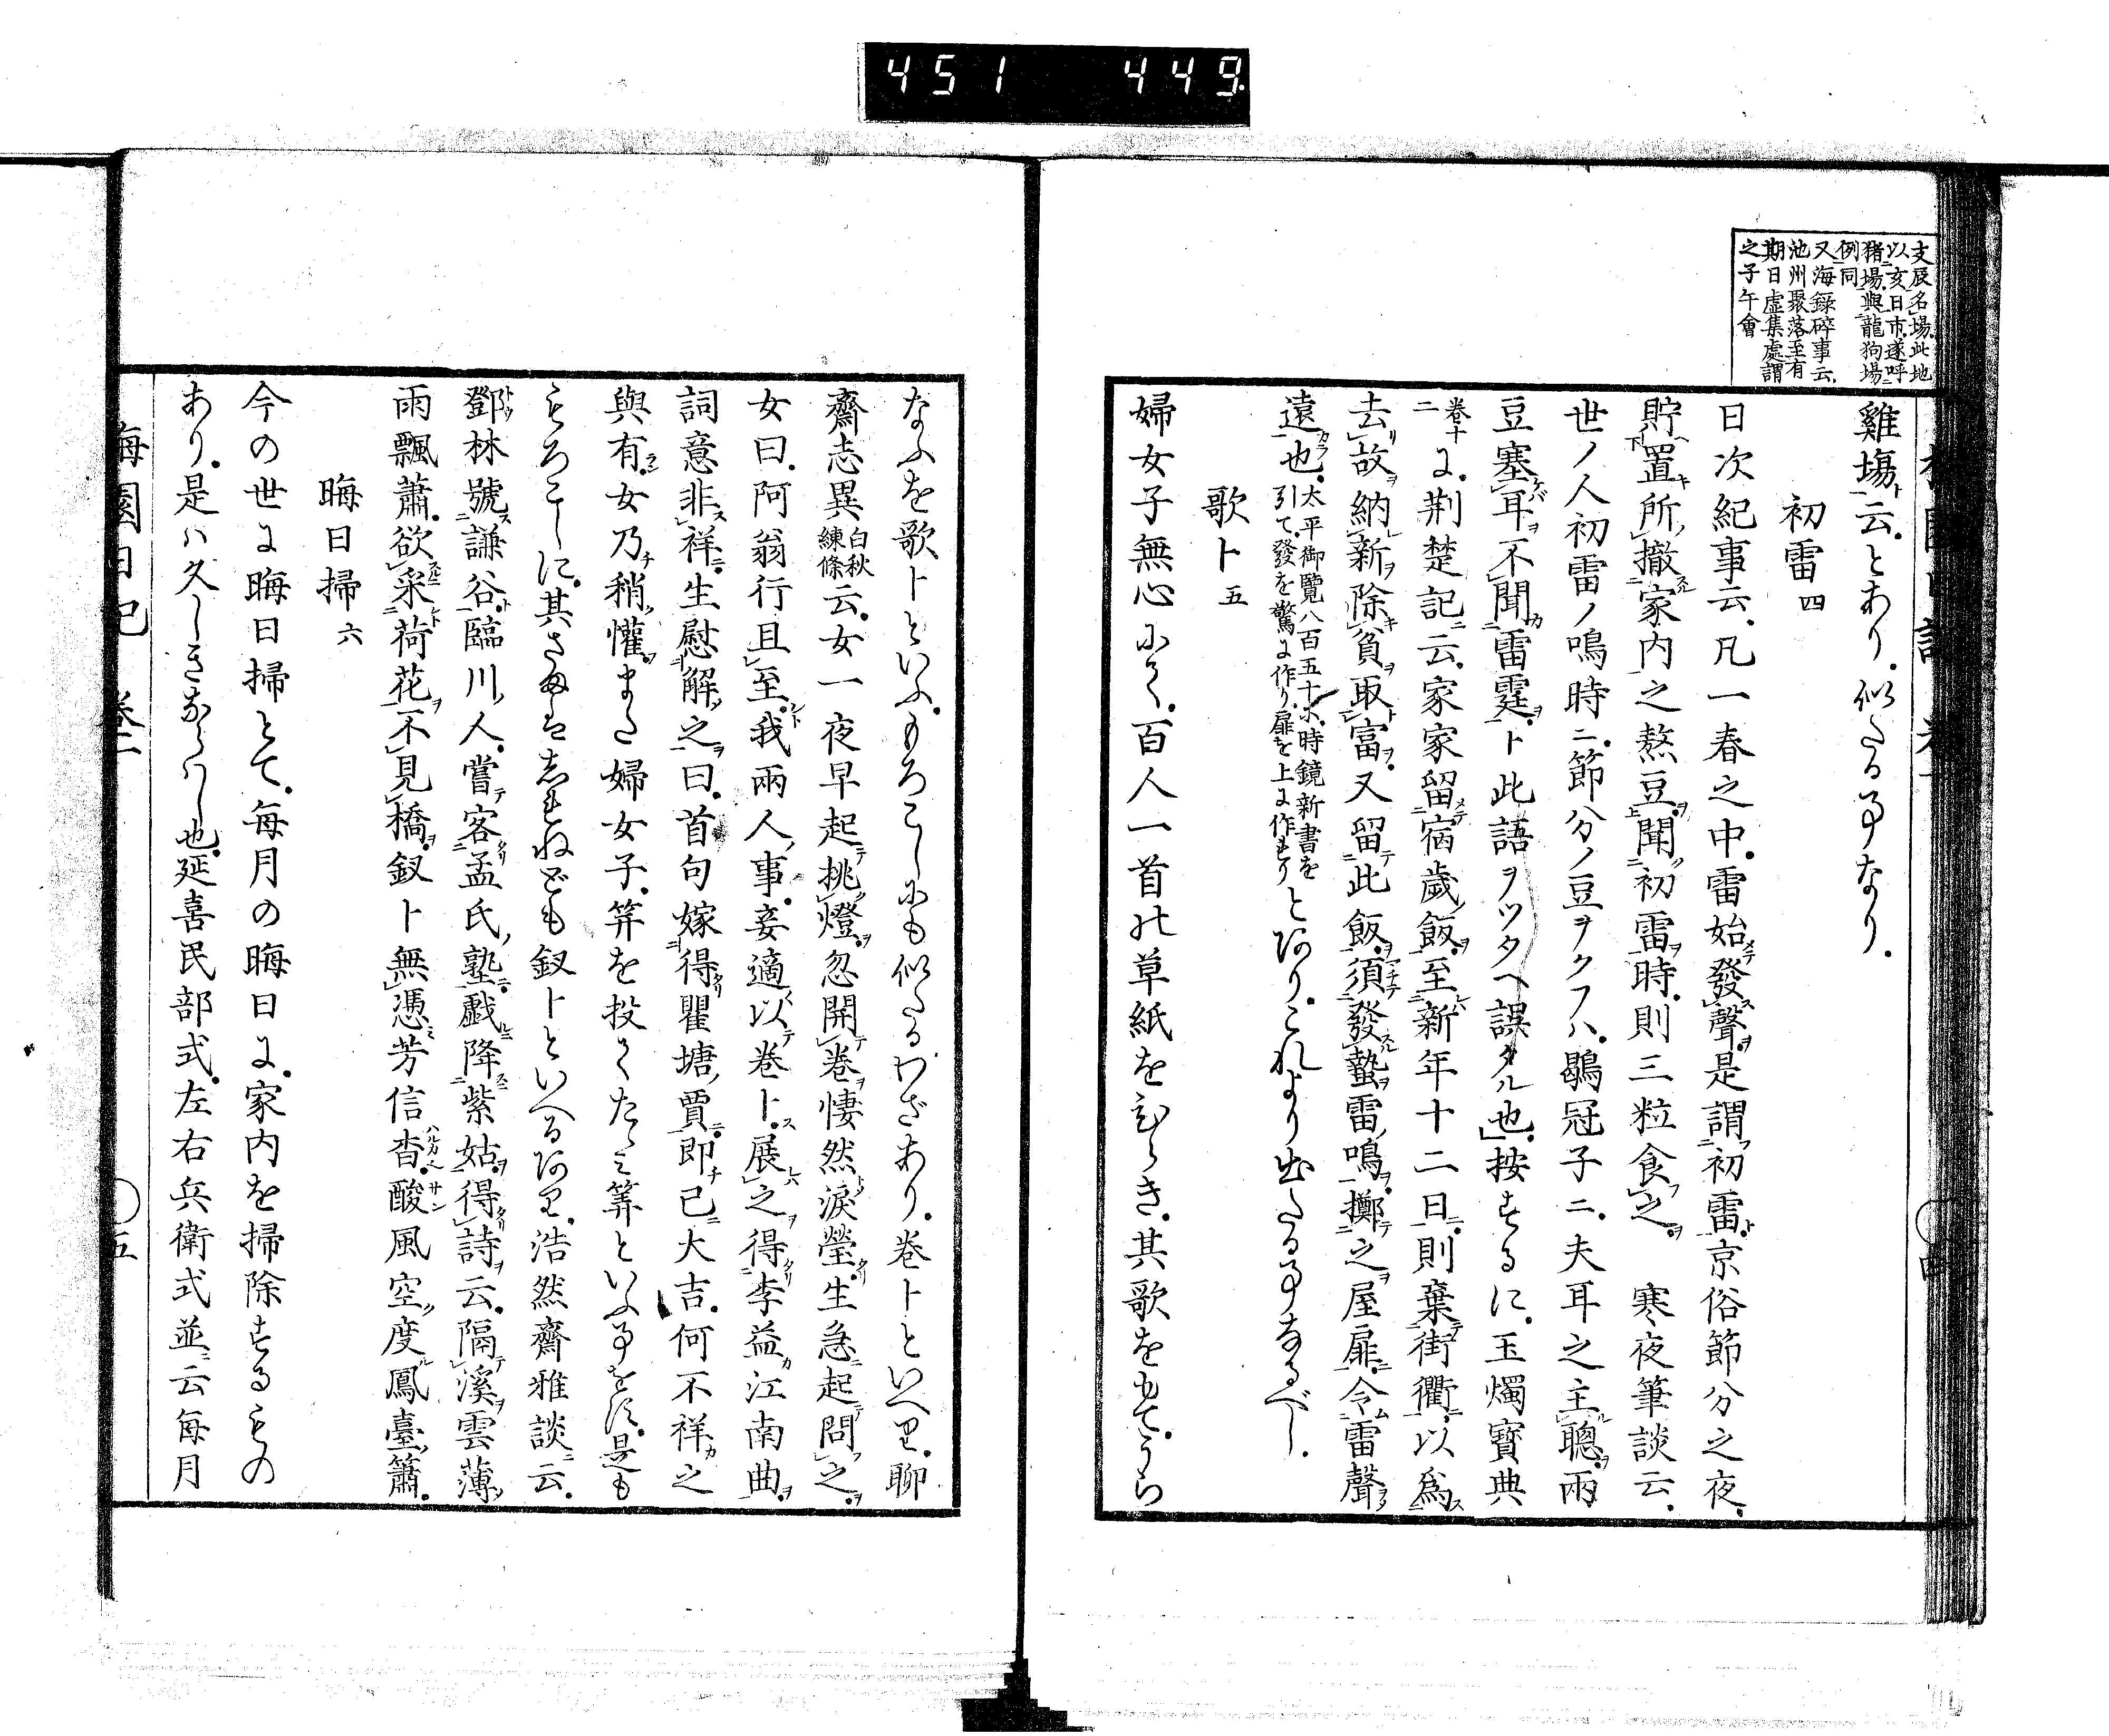 451 449
支辰名場此地
以亥日市遂呼
猪場與龍狗場
例同
又海錄碎事云
池州聚落至有
期日虛集處謂
之子午會
雞場云とあり似たる事なり
初雷四
日次紀事云凡一春之中雷始發聲是謂初雷京俗節分之夜
貯置所撤家内之熬豆聞初雷時則三粒食之 寒夜筆談云
世ノ人初雷ノ鳴時ニ節分ノ豆ヲクフハ鶡冠子ニ夫耳之主聰兩
豆塞耳不聞雷霆ト此語ヲツタヘ誤タル也按するに玉燭寶典
卷十二に荆楚記云家家留宿歲飯至新年十二日則棄街衢以爲
去故納新除貧取富又留此飯須發蟄雷鳴擲之屋扉令雷聲
遠也太平御覽八百五十に時鏡新書を引て發を驚に作り扉を上に作れりとありこれより出たる事なるべし
歌卜五
婦女子無心にて百人一首の草紙をひらき其歌をもてうら
なふを歌卜といふもろこしにも似たるわざあり卷卜といへり聊
齋志異白秋練條云女一夜早起挑燈忽開卷悽然淚瑩生急起問之
女曰阿翁行且至我兩人事妾適以卷卜展之得李益江南曲
詞意非祥生慰解之曰首句嫁得瞿塘賈即已大吉何不祥之
與有女乃稍懽また婦女子筭を投てたゝみ筭といふ事をす是も
もろこしに其さまはしれねども釵卜といへるあり浩然齋雅談云
鄧林號謙谷臨川人嘗客孟氏塾戲降紫姑得詩云隔溪雲薄
雨飄蕭欲采荷花不見橋釵卜無憑芳信杳酸風空度鳳臺簫
晦日掃六
今の世に晦日掃とて每月の晦日に家内を掃除するもの
あり是ハ久しきならハし也延喜民部式左右兵衛式並云每月
梅園日記 卷二 五